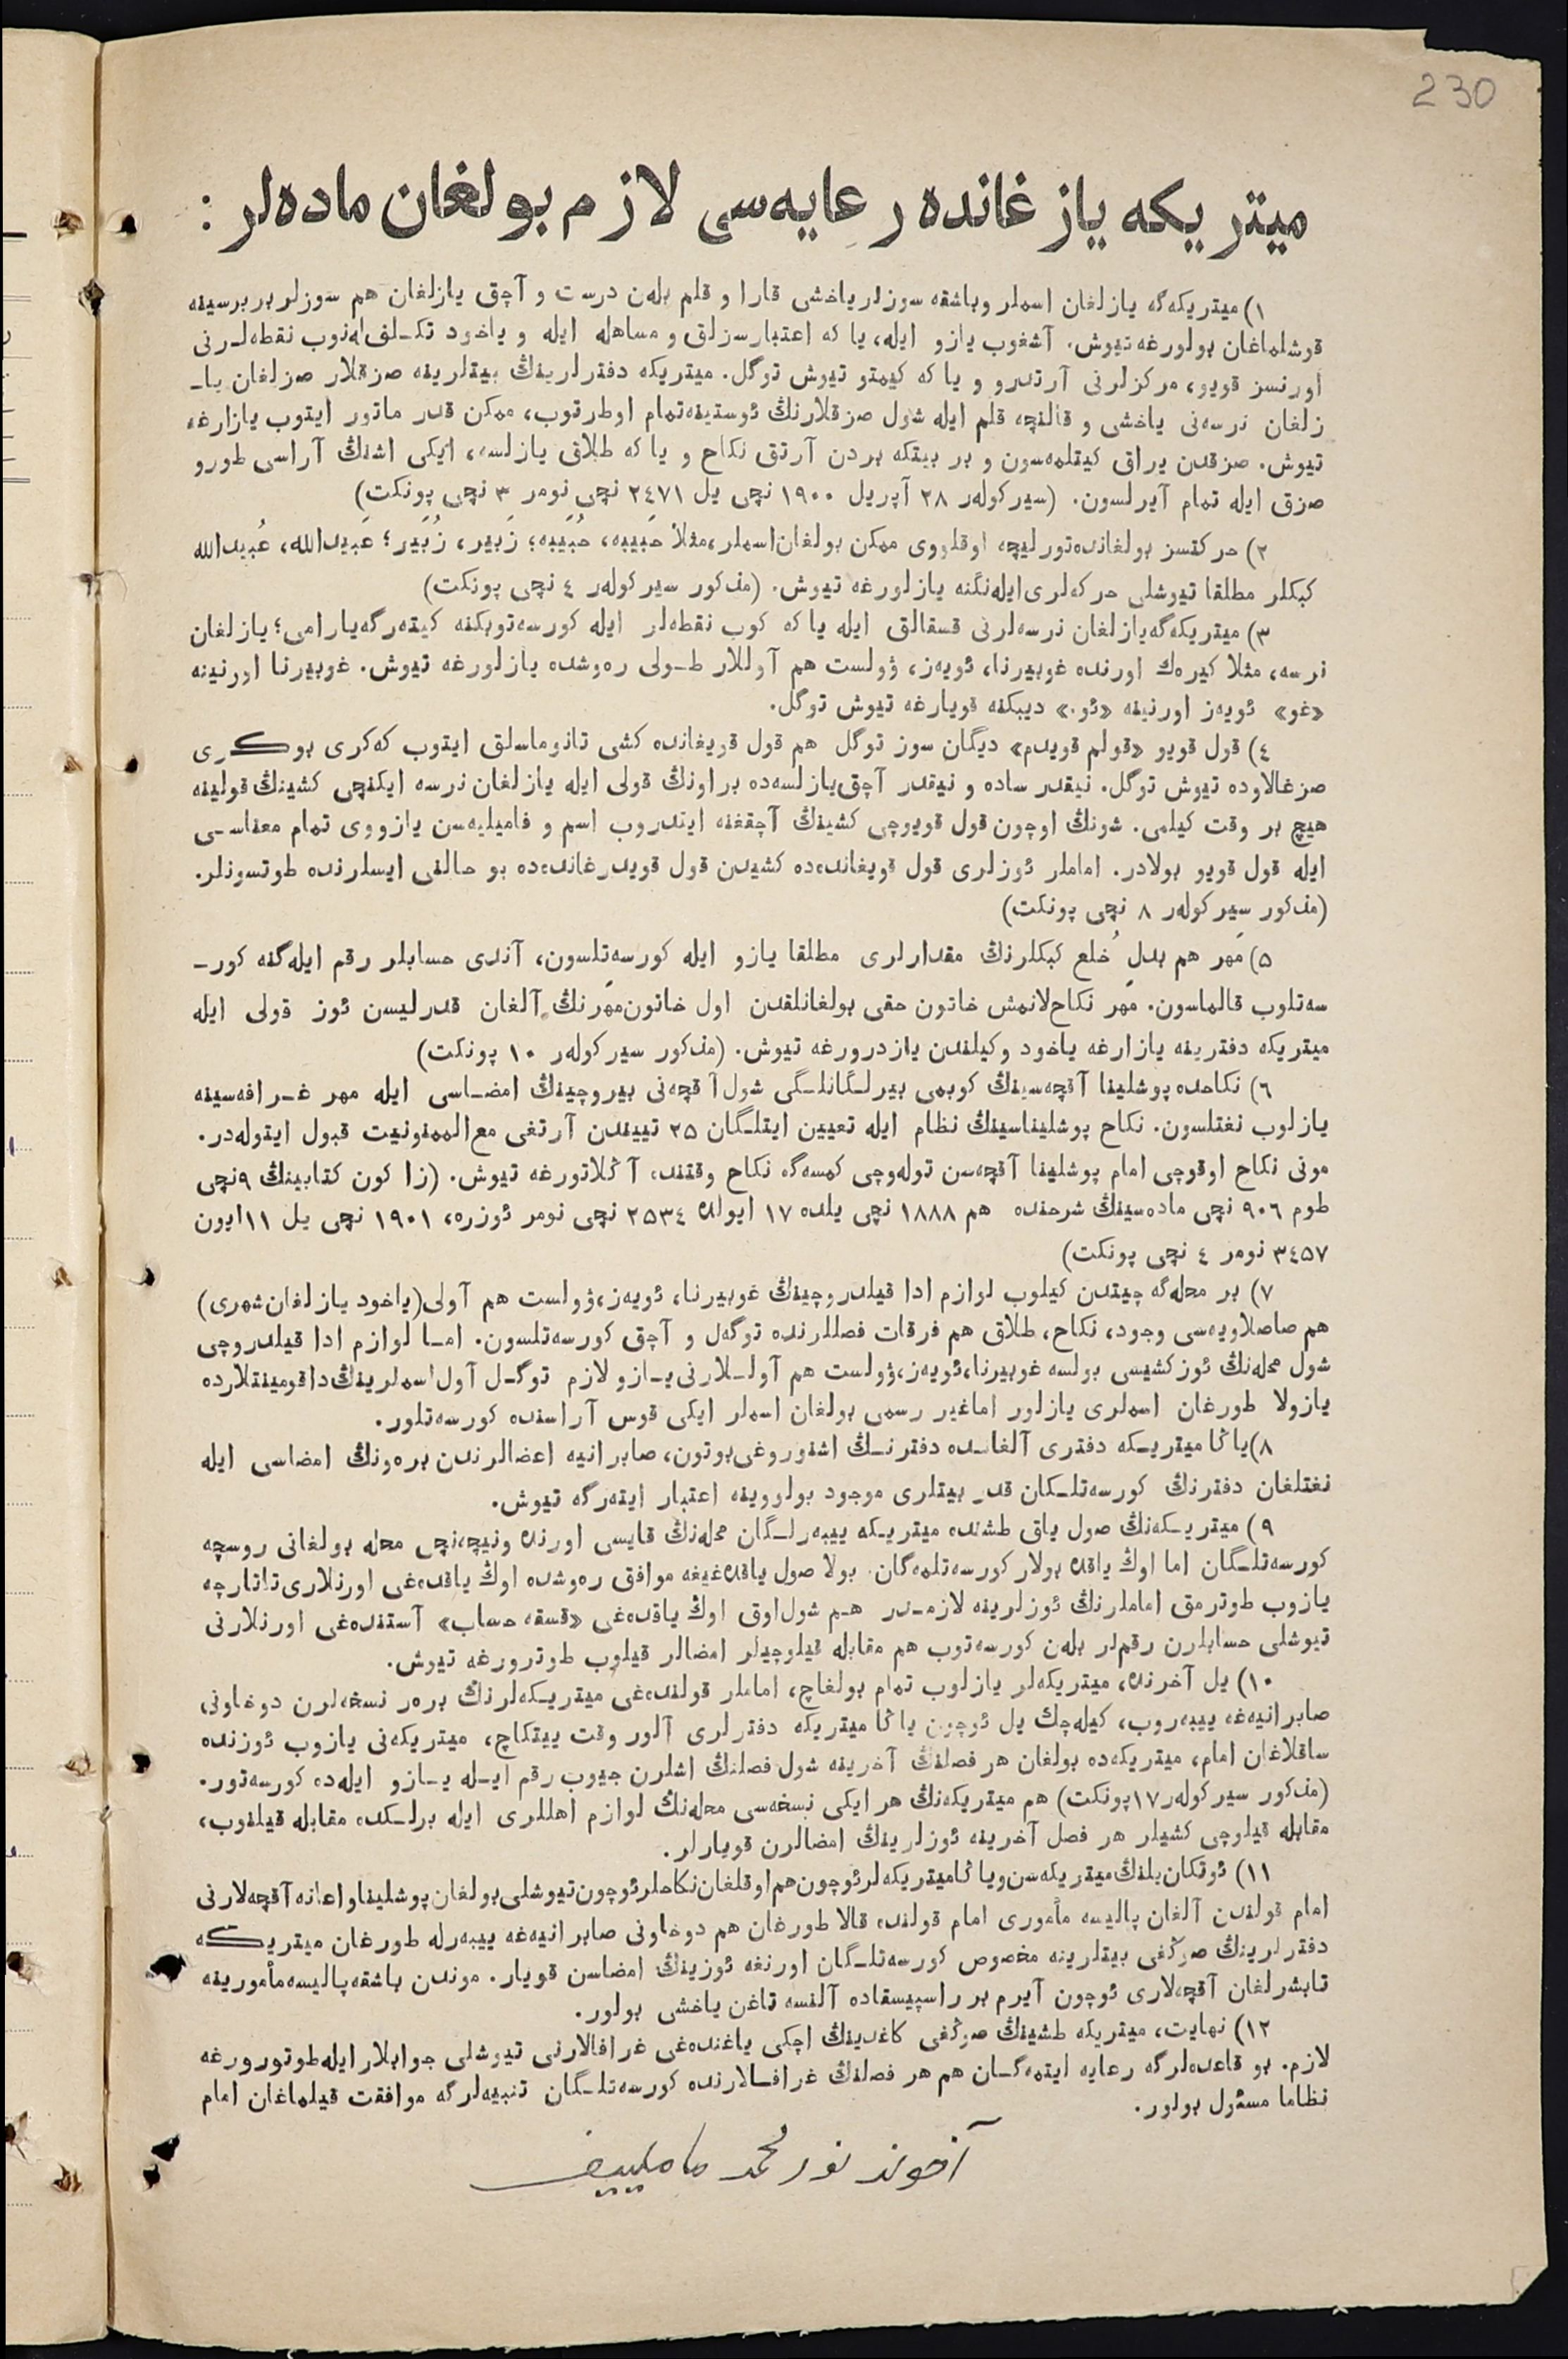 230
ميتريكه يازغانده رعايه‌سى لازم بولغان ماده‌لر :
١) ميتريكه‌گه يازلغان اسملر وباشقه سوزلر ياخشى قارا و قلم بله‌ن درست و آچق يازلغان هم سوزلر بربرسينه
قوشلماغان بولورغه تيوش. آشغوب يازو ايله، يا كه اعتبارسزلق و مساهله ايله و ياخود تكـلفله‌نوب نقطه‌لـرنى
اورنسز قويو، مركزلرنى آرتدرو و يا كه كيمتو تيوش توگل. ميتريكه دفترلرينڭ بيتلرينه صزقلار صزلغان ياـ
زلغان نرسه‌نى ياخشى و قالنچه قلم ايله شول صزقلارنڭ ئوستينه‌تمام اوطرتوب، ممكن قدر ماتور ايتوب يازارغه
تيوش. صزقدن يراق كيتلمه‌سون و بر بيتكه بردن آرتق نكاح و يا كه طلاق يازلسه، ايكى اشنڭ آراسى طورو
صزق ايله تمام آيرلسون. (سيركوله‌ر ٢٨ آپريل ١٩٠٠ نچى يل ٢٤٧١ نچى نومر ٣ نچى پونكت)
٢) حركتسز بولغانده‌تورليچه اوقلووى ممكن بولغان‌اسملر،مثلا حَبيبه، حُبَيبه؛ زَبير، زُبَير؛ عَبيدالله، عُبيدالله
كبكلر مطلقا تيوشلى حركه‌لرى‌ايله‌نگنه يازلورغه تيوش. (مذكور سيركوله‌ر ٤ نچى پونكت)
٣) ميتريكه‌گه‌يازلغان نرسه‌لرنى قسقالق ايله يا كه كوب نقطه‌لر ايله كورسه‌توبكنه كيته‌رگه‌يارامى؛ يازلغان
نرسه، مثلا كيره‌ك اورنده غوبيرنا، ئويه‌ز، ۋولست هم آوللار طـولى ره‌وشده يازلورغه تيوش. غوبيرنا اورنينه
«غو» ئويه‌ز اورنينه «ئو.» ديبكنه قويارغه تيوش توگل.
٤) قول قويو «قولم قويدم» ديگان سوز توگل هم قول قويغانده كشى تانوماسلق ايتوب كه‌كرى بوكرى
صزغالاوده تيوش توگل. نيقدر ساده و نيقدر آچق‌يازلسه‌ده براونڭ قولى ايله يازلغان نرسه ايكنچى كشينڭ قولينه
هيچ بر وقت كيلمى. شونڭ اوچون قول قويوچى كشينڭ آچقغنه ايتدروب اسم و فاميليه‌سن يازووى تمام معناسـى
ايله قول قويو بولادر. اماملر ئوزلرى قول قويغانده‌ده كشيدن قول قويدرغانده‌ده بو حالنى ايسلرنده طوتسونلر.
(مذكور سيركوله‌ر ٨ نچى پونكت)
٥) مَهر هم بدل خُلع كبكلرنڭ مقدارلرى مطلقا يازو ايله كورسه‌تلسون، آندى حسابلر رقم ايله‌گنه كورـ
سه‌تلوب قالماسون. مَهر نكاح‌لانمش خاتون حقى بولغانلقدن اول خاتون‌مهرنڭ آلغان قدرليسن ئوز قولى ايله
ميتريكه دفترينه يازارغه ياخود وكيلندن يازدرورغه تيوش. (مذكور سيركوله‌ر ١٠ پونكت)
٦) نكاحده پوشلينا آقچه‌سينڭ كوبمى بيرلـگانلـگى شول آقچه‌نى بيروچينڭ امضـاسى ايله مهر غـرافه‌سينه
يازلوب نغتلسون. نكاح پوشليناسينڭ نظام ايله تعيين ايتلـگان ٢٥ تييندن آرتغى مع‌الممنونيت قبول ايتوله‌در.
مونى نكاح اوقوچى امام پوشلينا آقچه‌سن توله‌وچى كمسه‌گه نكاح وقتنده آڭلاتورغه تيوش. (زاكون كتابينڭ ٩نچى
طوم ٩٠٦ نچى ماده‌سينڭ شرحنده هم ١٨٨٨ نچى يلده ١٧ ايولده ٢٥٣٤ نچى نومر ئوزره، ١٩٠١ نچى يل ١١ايون
٣٤٥٧ نومر ٤ نچى پونكت)
٧) بر محله‌گه چيتدن كيلوب لوازم ادا قيلدروچينڭ غوبيرنا، ئويه‌ز،ۋولست هم آولى(ياخود يازلغان‌شهرى)
هم صاصلاويه‌سى وجود، نكاح، طلاق هم فرقات فصللرنده توگه‌ل و آچق كورسه‌تلسون. امـا لوازم ادا قيلدروچى
شول محله‌نڭ ئوزكشيسى بولسه غوبيرنا،ئويه‌ز،ۋولست هم آولـلارنى يـازو لازم توگـل آول‌اسملرينڭ‌داقومينتلارده
يازولا طورغان اسملرى يازلور اماغير رسمى بولغان اسملر ايكى قوس آراسنده كورسه‌تلور.
٨)ياڭا ميتريـكه دفترى آلغانـده دفترنـڭ اشنوروغى‌بوتون، صابرانيه اعضالرندن بره‌ونڭ امضاسى ايله
نغتلغان دفترنڭ كورسه‌تلـكان قدر بيتلرى موجود بولووينه اعتبار ايته‌رگه تيوش.
٩) ميتريـكه‌نڭ صول ياق طشنده ميتريـكه ييبه‌رلـگان محله‌نڭ قايسى اورنده ونيچه‌نچى محله بولغانى روسچه
كورسه‌تلـگان اما اوڭ ياقده بولار كورسه‌تلمه‌گان. بولا صول ياقده‌غيغه موافق ره‌وشده اوڭ ياقده‌غى اورنلارى‌تاتارچه
يازوب طوترمق اماملرنڭ ئوزلرينه لازمـدر هـم شول‌اوق اوڭ ياقده‌غى «قسقه حساب» آستنده‌غى اورنلارنى
تيوشلى حسابلرن رقم‌لر بله‌ن كورسه‌توب هم مقابله قيلوچيلر امضالر قيلوب طوترورغه تيوش.
١٠) يل آخرنده، ميتريكه‌لر يازلوب تمام بولغاچ، اماملر قولنده‌غى ميتريـكه‌لرنڭ بره‌ر نسخه‌لرن دوخاونى
صابرانيه‌غه ييبه‌روب، كيله‌چك يل ئوچون ياڭا ميتريكه دفترلرى آلور وقت ييتكاچ، ميتريكه‌نى يازوب ئوزنده
ساقلاغان امام، ميتريكه‌ده بولغان هر فصلنڭ آخرينه شول فصلنڭ اشلرن جيوب رقم ايـله يـازو ايله‌ده كورسه‌تور.
(مذكور سيركوله‌ر١٧پونكت) هم ميتريكه‌نڭ هر ايكى نسخه‌سى محله‌نڭ لوازم اهللرى ايله برلـكده مقابله قيلنوب،
مقابله قيلوچى كشيلر هر فصل آخرينه ئوزلرينڭ امضالرن قويارلر.
١١) ئوتكان‌يلنڭ‌ميتريكه‌سن‌وياڭاميتريكه‌لرئوچون‌هم‌اوقلغان‌نكاحلرئوچون‌تيوشلى‌بولغان‌پوشليناواعانه‌آقچه‌لارنى
امام قولندن آلغان پاليسه مأمورى امام قولنده قالا طورغان هم دوخاونى صابرانيه‌غه ييبه‌رله طورغان ميتريكه
دفترلرينڭ صوڭغى بيتلرينه مخصوص كورسه‌تلـگان اورنغه ئوزينڭ امضاسن قويار. موندن باشقه‌پاليسه‌مأمورينه
تابشرلغان آقچه‌لارى ئوچون آيرم بر راسپيسقاده آلنسه تاغن ياخشى بولور.
١٢) نهايت، ميتريكه طشينڭ صوڭغى كاغدينڭ اچكى ياغنده‌غى غرافالارنى تيوشلى جوابلار ايله‌طوتورورغه
لازم. بو قاعده‌لرگه رعايه ايتمه‌گـان هم هر فصلنڭ غرافـالارنده كورسه‌تلـگان تنبيه‌لرگه موافقت قيلماغان امام
نظاما مسئول بولور.
آخوند نورمحمد ماملييف